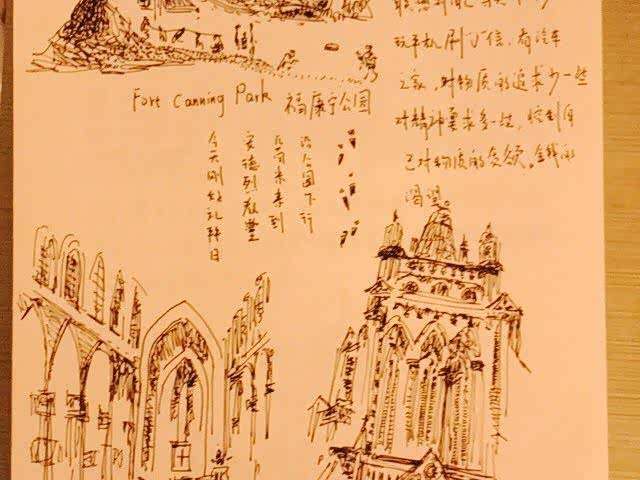 玩手机刷V信,看汽车
之家,对物质的追求少一些
对精神要求多一些,控制自
己对物质的贪欲,金钱的
渴望。
Fort Canning Park 福康宁公园
沿公园下行
来到
安德列教堂
今天刚好礼拜日